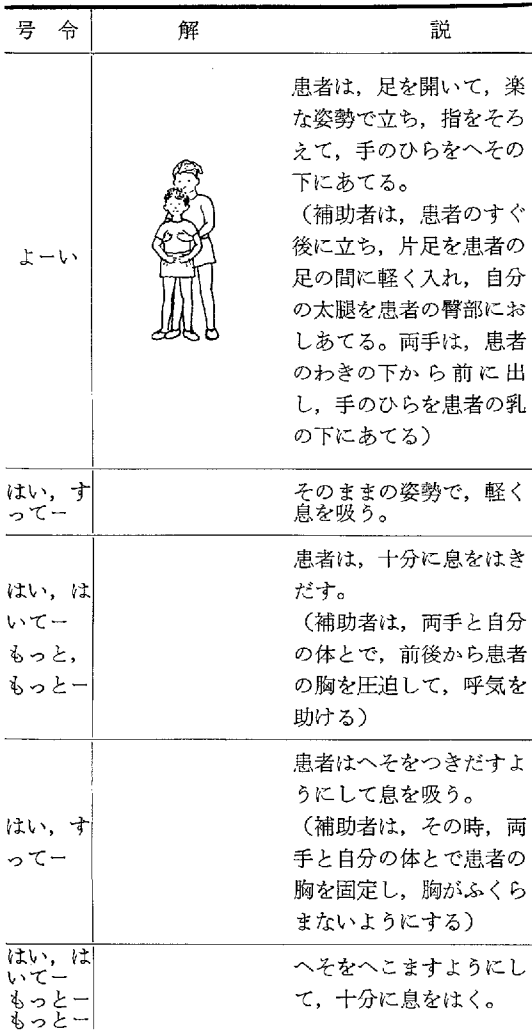 号 令 解 説
よーい
患者は，足を開いて，楽
な姿勢で立ち，指をそろ
えて，手のひらをへその
下にあてる。
（補助者は，患者のすぐ
後に立ち，片足を患者の
足の間に軽く入れ，自分
の太腿を患者の臀部にお
しあてる。両手は，患者
のわきの下から前に出
し，手のひらを患者の乳
の下にあてる）
はい，す
ってー
そのままの姿勢で，軽く
息を吸う。
はい，は
いてー
もっと，
もっとー
患者は，十分に息をはき
だす。
（補助者は，両手と自分
の体とで，前後から患者
の胸を圧迫して，呼気を
助ける）
はい，す
ってー
患者はへそをつきだすよ
うにして息を吸う。
（補助者は，その時，両
手と自分の体とで患者の
胸を固定し，胸がふくら
まないようにする）
はい，は
いてー
もっとー
もっとー
へそをへこますようにし
て，十分に息をはく。